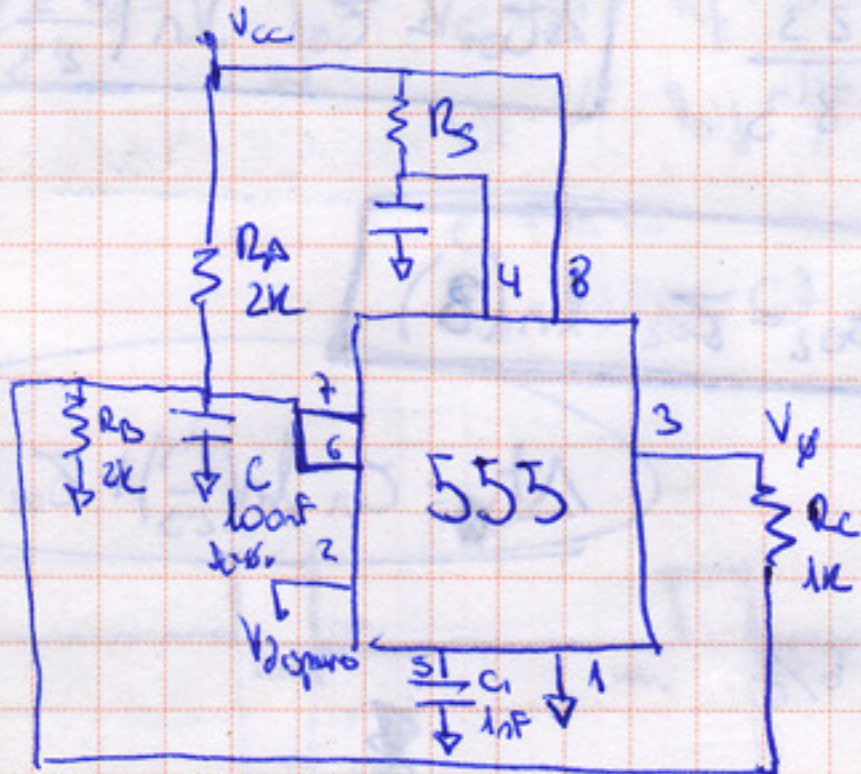 Vcc
RS
RA
2K
4
8
7
6
2
3
Vø
RB
2K
C
100nF
555
RC
1K
Vdisparo
5
C1
1nF
1